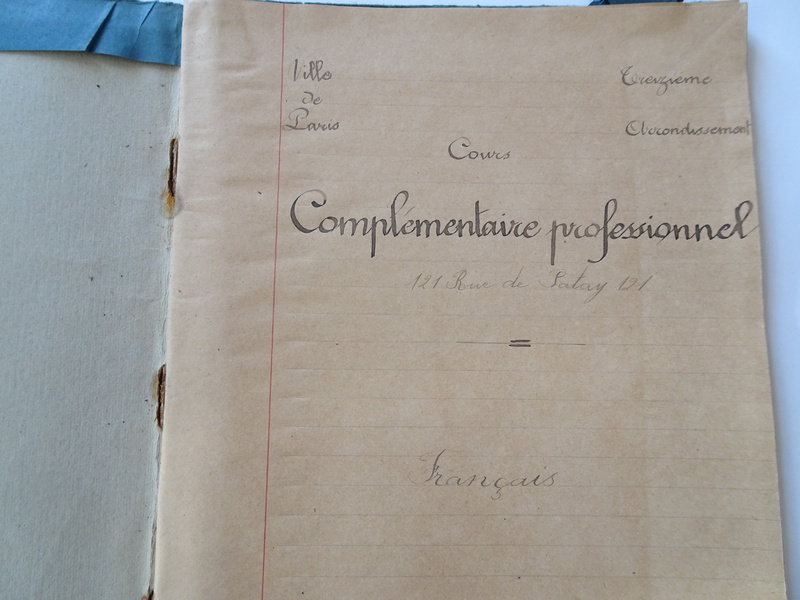 Ville
de
Paris
Treizième
Arrondissement
Cours
Complémentaire professionnel
121 Rue de Patay 121
Français